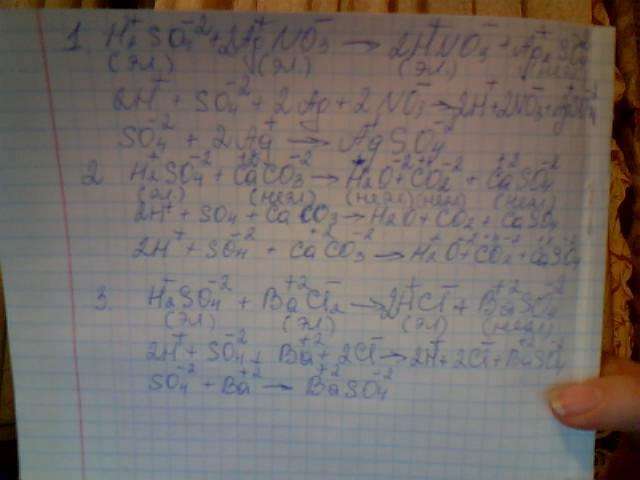 1 H₂⁺SO₄⁻² + 2Ag⁺NO₃⁻ → 2H⁺NO₃⁻ + Ag₂SO₄
(эл) (эл) (эл) (неэл)
2H⁺ + SO₄⁻² + 2Ag + 2NO₃⁻ → 2H⁺ + 2NO₃⁻ +
SO₄⁻² + 2Ag⁺ → Ag⁺SO₄⁻²
2 H₂⁺SO₄⁻² + Ca⁺²CO₃⁻² → H₂⁺O⁻² + CO₂⁻² + Ca⁺²SO₄⁻²
(эл) (неэл) (неэл) (неэл) (неэл)
2H⁺ + SO₄ + CaCO₃ → H₂O + CO₂ + CaSO₄
2H⁺ + SO₄⁻² + Ca⁺²CO₃⁻² → H₂O + CO₂ + CaSO₄
3. H₂⁺SO₄⁻² + Ba⁺²Cl₂⁻ → 2H⁺Cl⁻ + Ba⁺²SO₄⁻²
(эл) (эл) (эл) (неэл)
2H⁺ + SO₄⁻² + Ba⁺² + 2Cl⁻ → 2H⁺ + 2Cl⁻ + Ba⁺²SO₄⁻²
SO₄⁻² + Ba⁺² → Ba⁺²SO₄⁻²